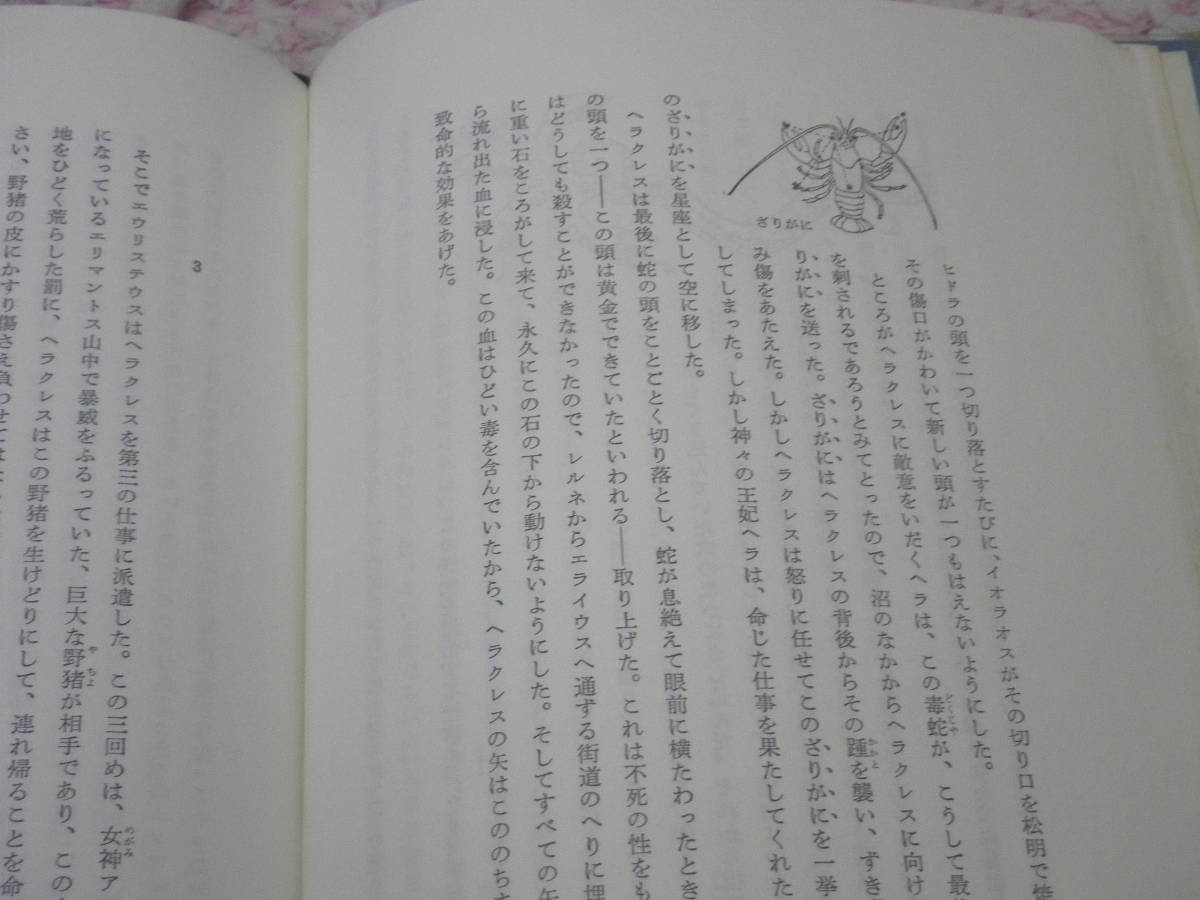 ヒドラの頭を一つ切り落とすたびに、イオラオスがその切り口を松明で
その傷口がかわいて新しい頭が一つもはえないようにした。
ところがヘラクレスに敵意をいだくヘラは、この毒蛇が、こうして最
を刺されるであろうとみてとったので、沼のなかからヘラクレスに向け
りがにを送った。ざりがにはヘラクレスの背後からその踵を襲い、ずき
み傷をあたえた。しかしヘラクレスは怒りに任せてこのざりがにを一挙
してしまった。しかし神々の王妃ヘラは、命じた仕事を果たしてくれた
のざりがにを星座として空に移した。
ヘラクレスは最後に蛇の頭をことごとく切り落とし、蛇が息絶えて眼前に横たわったとき
の頭を一つ――この頭は黄金でできていたといわれる――取り上げた。これは不死の性をも
はどうしても殺すことができなかったので、レルネからエライウスへ通ずる街道のへりに埋
に重い石をころがして来て、永久にこの石の下から動けないようにした。そしてすべての矢
ら流れ出た血に浸した。この血はひどい毒を含んでいたから、ヘラクレスの矢はこののち
致命的な効果をあげた。
ざりがに
3
そこでエウリステウスはヘラクレスを第三の仕事に派遣した。この三回めは、女神ア
になっているエリマントス山中で暴威をふるっていた、巨大な野猪が相手であり、この
地をひどく荒らした罰に、ヘラクレスはこの野猪を生けどりにして、連れ帰ることを命
さい、野猪の皮にかすり傷さえ負わせては